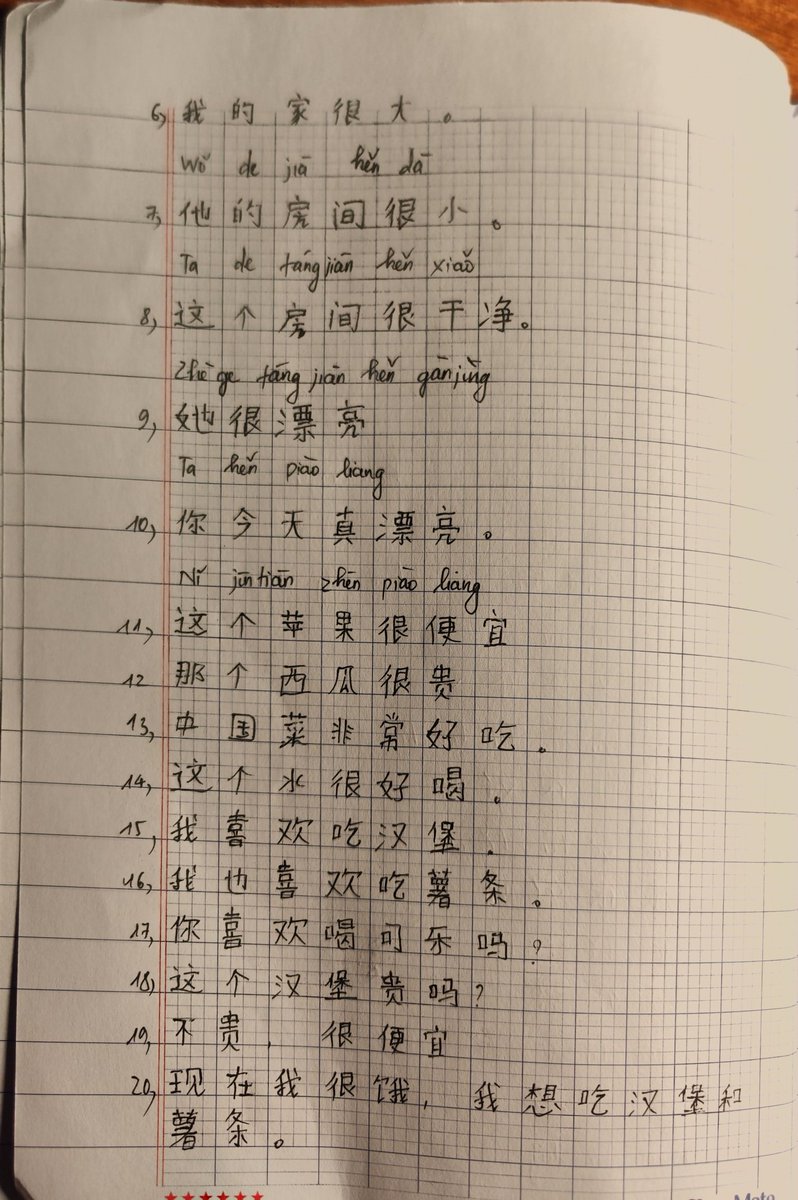 6, 我的家很大。
Wǒ de jiā hěn dā
7, 他的房间很小。
Ta de táng jiān hěn xiǎo
8, 这个房间很干净。
Zhè ge táng jiān hěn gān jǐng
9, 她很漂亮
Ta hěn piào liang
10, 你今天真漂亮。
Nǐ jīn tiān zhēn piào liàng
11, 这个苹果很便宜
12 那个西瓜很贵
13, 中国菜非常好吃.
14, 这个水很好喝.
15, 我喜欢吃汉堡.
16, 我也喜欢吃薯条。
17, 你喜欢喝可乐吗?
18, 这个汉堡贵吗?
19, 不贵, 很便宜
20, 现在我很饿, 我想吃汉堡和
薯条。